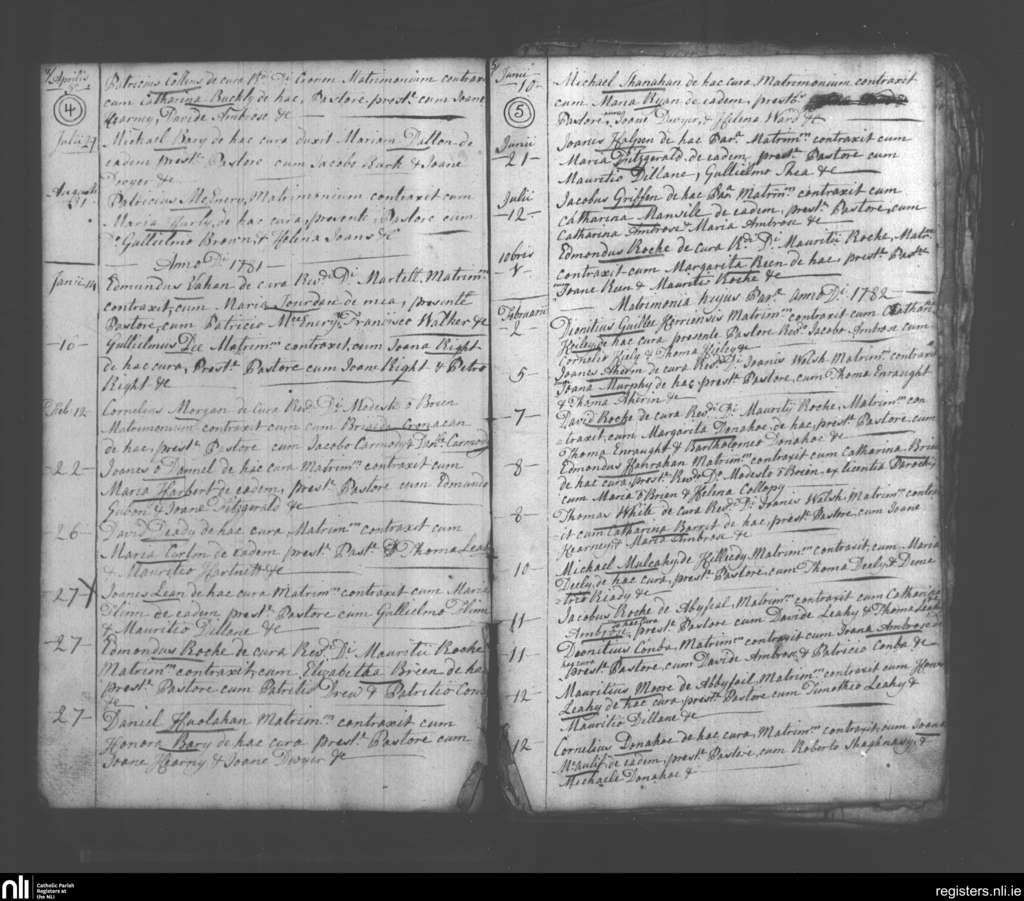 Aprilis
4
Patricius Collins de cura Rdi Di Matrimonium contraxit
cum Catharina Buckly de hac, Pastore prestt cum Joane
Kearny, Davide Ambrose &c
Julii 27
Michael Bary de hac cura duxit Mariam Dallon de
eadem prestt Pastore cum Jacobo Burk & Joane
Dwyer &c
Augusti
Patricius McEnery Matrimonium contraxit cum
Maria de hac cura, presente Pastore cum
Gullielmo Brown & Helena Joans &c
Anno Di 1781
Janii 14
Edmundus Vahan de cura Revd Di Martell, Matrimm
contraxit, cum Maria Jourdan de mea, presente
Pastore, cum Patricio McEnery, Francisco Walker &c
10
Gullielmus Dee Matrimm contraxit, cum Joana Right
de hac cura, Prestt Pastore cum Joane Right & Petro
Right &c
Feb 12
Cornelius Morgan de cura Revd Di Modesti ô Brien
Matrimonium contraxit cum Brigida Cronacan
de hac, prestt Pastore cum Jacobo Carmody & Carmody
22
Joanes ô Donnel de hac cura Matrimm contraxit cum
Maria Harbert de eadem, prestt Pastore cum Edmundo
Gubon & Joane Fitzgerald &c
26
David Deady de hac cura Matrimm contraxit cum
Maria de eadem prestt Pastt Thoma Leahy
& Mauritio Hartnett &c
27 X
Joanes Lean de hac cura Matrimm contraxit cum Maria
de eadem prestt Pastore cum Gullielmo
& Mauritio Dillane &c
27
Edmondus Roche de cura Revd Di Mauritii Roche
Matrimm contraxit, cum Elizabetha Brien de hac
prestt Pastore cum Patritio Drew & Patritio
&c
27
Daniel Huolahan Matrimm contraxit cum
Honora Bary de hac cura prestt Pastore cum
Joane Kearny & Joane Dwyer &c
Junii
10
5
Michael Shanahan de hac cura Matrimonium contraxit
cum Maria Ryan de eadem, prestt
Pastore cum Joane Dwyer, & Helena Ward &c
Junii
21
Joanes Halpen de hac Par. Matrimm contraxit cum
Maria Fitzgerald de eadem prestt Pastore cum
Mauritio Dillane, Gullielmo Shea &c
Julii
12
Jacobus Griffen de hac Par Matrimm contraxit cum
Catharina Mansele de eadem, prestt Pastore, cum
Catharina Ambrose & Maria Ambrose &c
10bris
Edmondus Roche de cura Rdi Di Mauritii Roche, Matrm
contraxit cum Margarita Reen de hac, prestt Pastre
Joane Reen & Mauritio Roche &c
Matrimonia hujus Par. Anno Di 1782
Februarii
2
Dionitius Guillee Kerriensis Matrimm contraxit cum Catharina
Kieley de hac cura presente Pastore Revd Jacobo Ambrose cum
Cornelio Kiely & Thoma Kieley &c
5
Joanes Aherin de cura Revd Di Joanis Welsh, Matrimm contraxit
Joana Murphy de hac, prestt Pastore, cum Thoma Enraught
& Thoma Aherin &c
7
David Roche de cura Revd Di Mauritij Roche, Matrimm con
traxit, cum Margarita Donahoe de hac, prestt Pastore, cum
Thoma Enraught & Bartholomeo Donahoe &c
8
Edmondus Hanrahan Matrimm contraxit cum Catharina Brien
de hac cura, prestt Revdo Do Modesto ô Brien ex licentia Parochi
cum Maria ô Brien & Helena Collopy
8
Thomas White de cura Revd Di Joanis Welsh, Matrimm contrax
it cum Catharina Barrit de hac, prestt Pastore, cum Joane
Kearney, & Maria Ambrose &c
10
Michael Mulcahy de Killeedy Matrimm contraxit, cum Maria
Deely de hac cura, prestt Pastore, cum Thoma Deely, & Deme
trio Ready &c
11
Jacobus Roche de Abyfeal, Matrimm contraxit cum Catharina
Ambrose de hac cura, prestt Pastore cum Davide Leahy & Thoma Leahy
11
Dionitius Conba Matrimm contraxit cum Joana Ambrose de
hac cura prestt Pastore cum Davide Ambrose & Patricio Conba &c
12
Mauritius Moore de Abbyfeil Matrimm contraxit cum Honora
Leahy de hac cura prestt Pastore cum Timotheo Leahy &
Mauritio Dillane &c
12
Cornelius Donahoe de hac cura, Matrimm contraxit, cum Joana
McAulif de eadem, prestt Pastore, cum Roberto Shaghnasy, &
Michaele Donahoe &
nli
Catholic Parish
Registers at
the NLI
registers.nli.ie